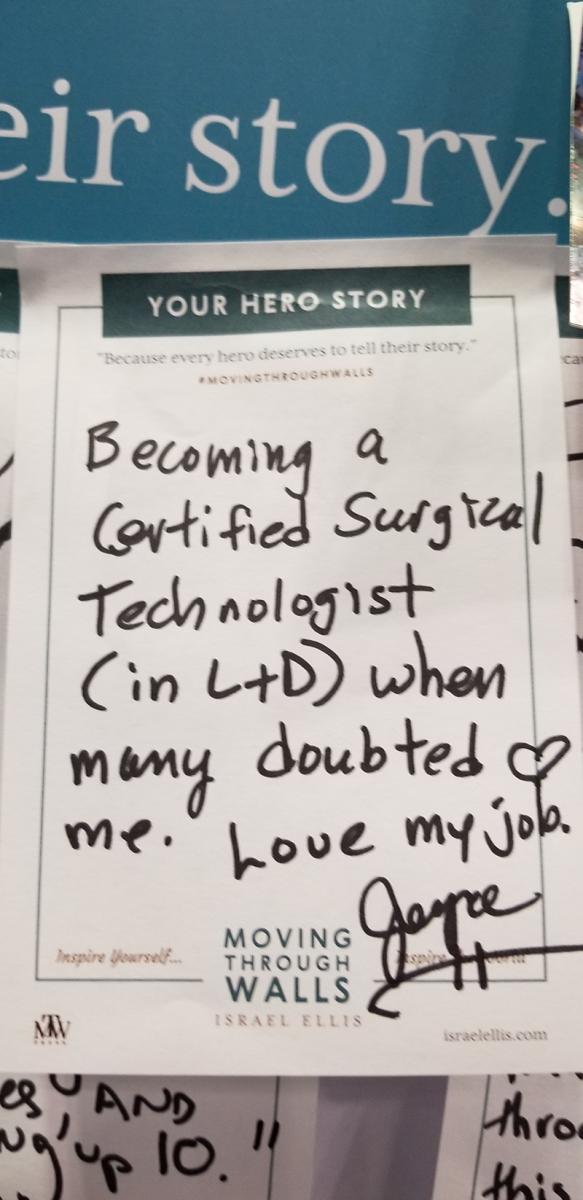 eir story.
YOUR HERO STORY
"Because every hero deserves to tell their story."
#MOVINGTHROUGHWALLS
Becoming a
Certified Surgical
Technologist
(in L+D) when
many doubted ♡
me. Love my job.
Joyce
Inspire Yourself...
MOVING
THROUGH
WALLS
ISRAEL ELLIS
MTW
israelellis.com
AND
up 10."
thro
this